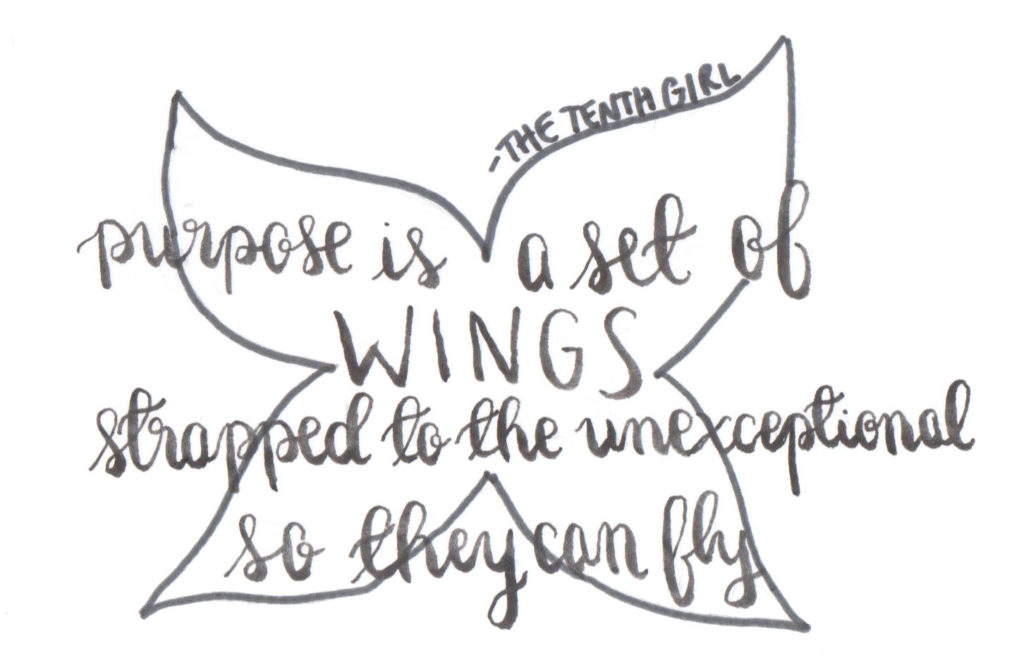 -THE TENTH GIRL
purpose is a set of
WINGS
strapped to the unexceptional
so they can fly